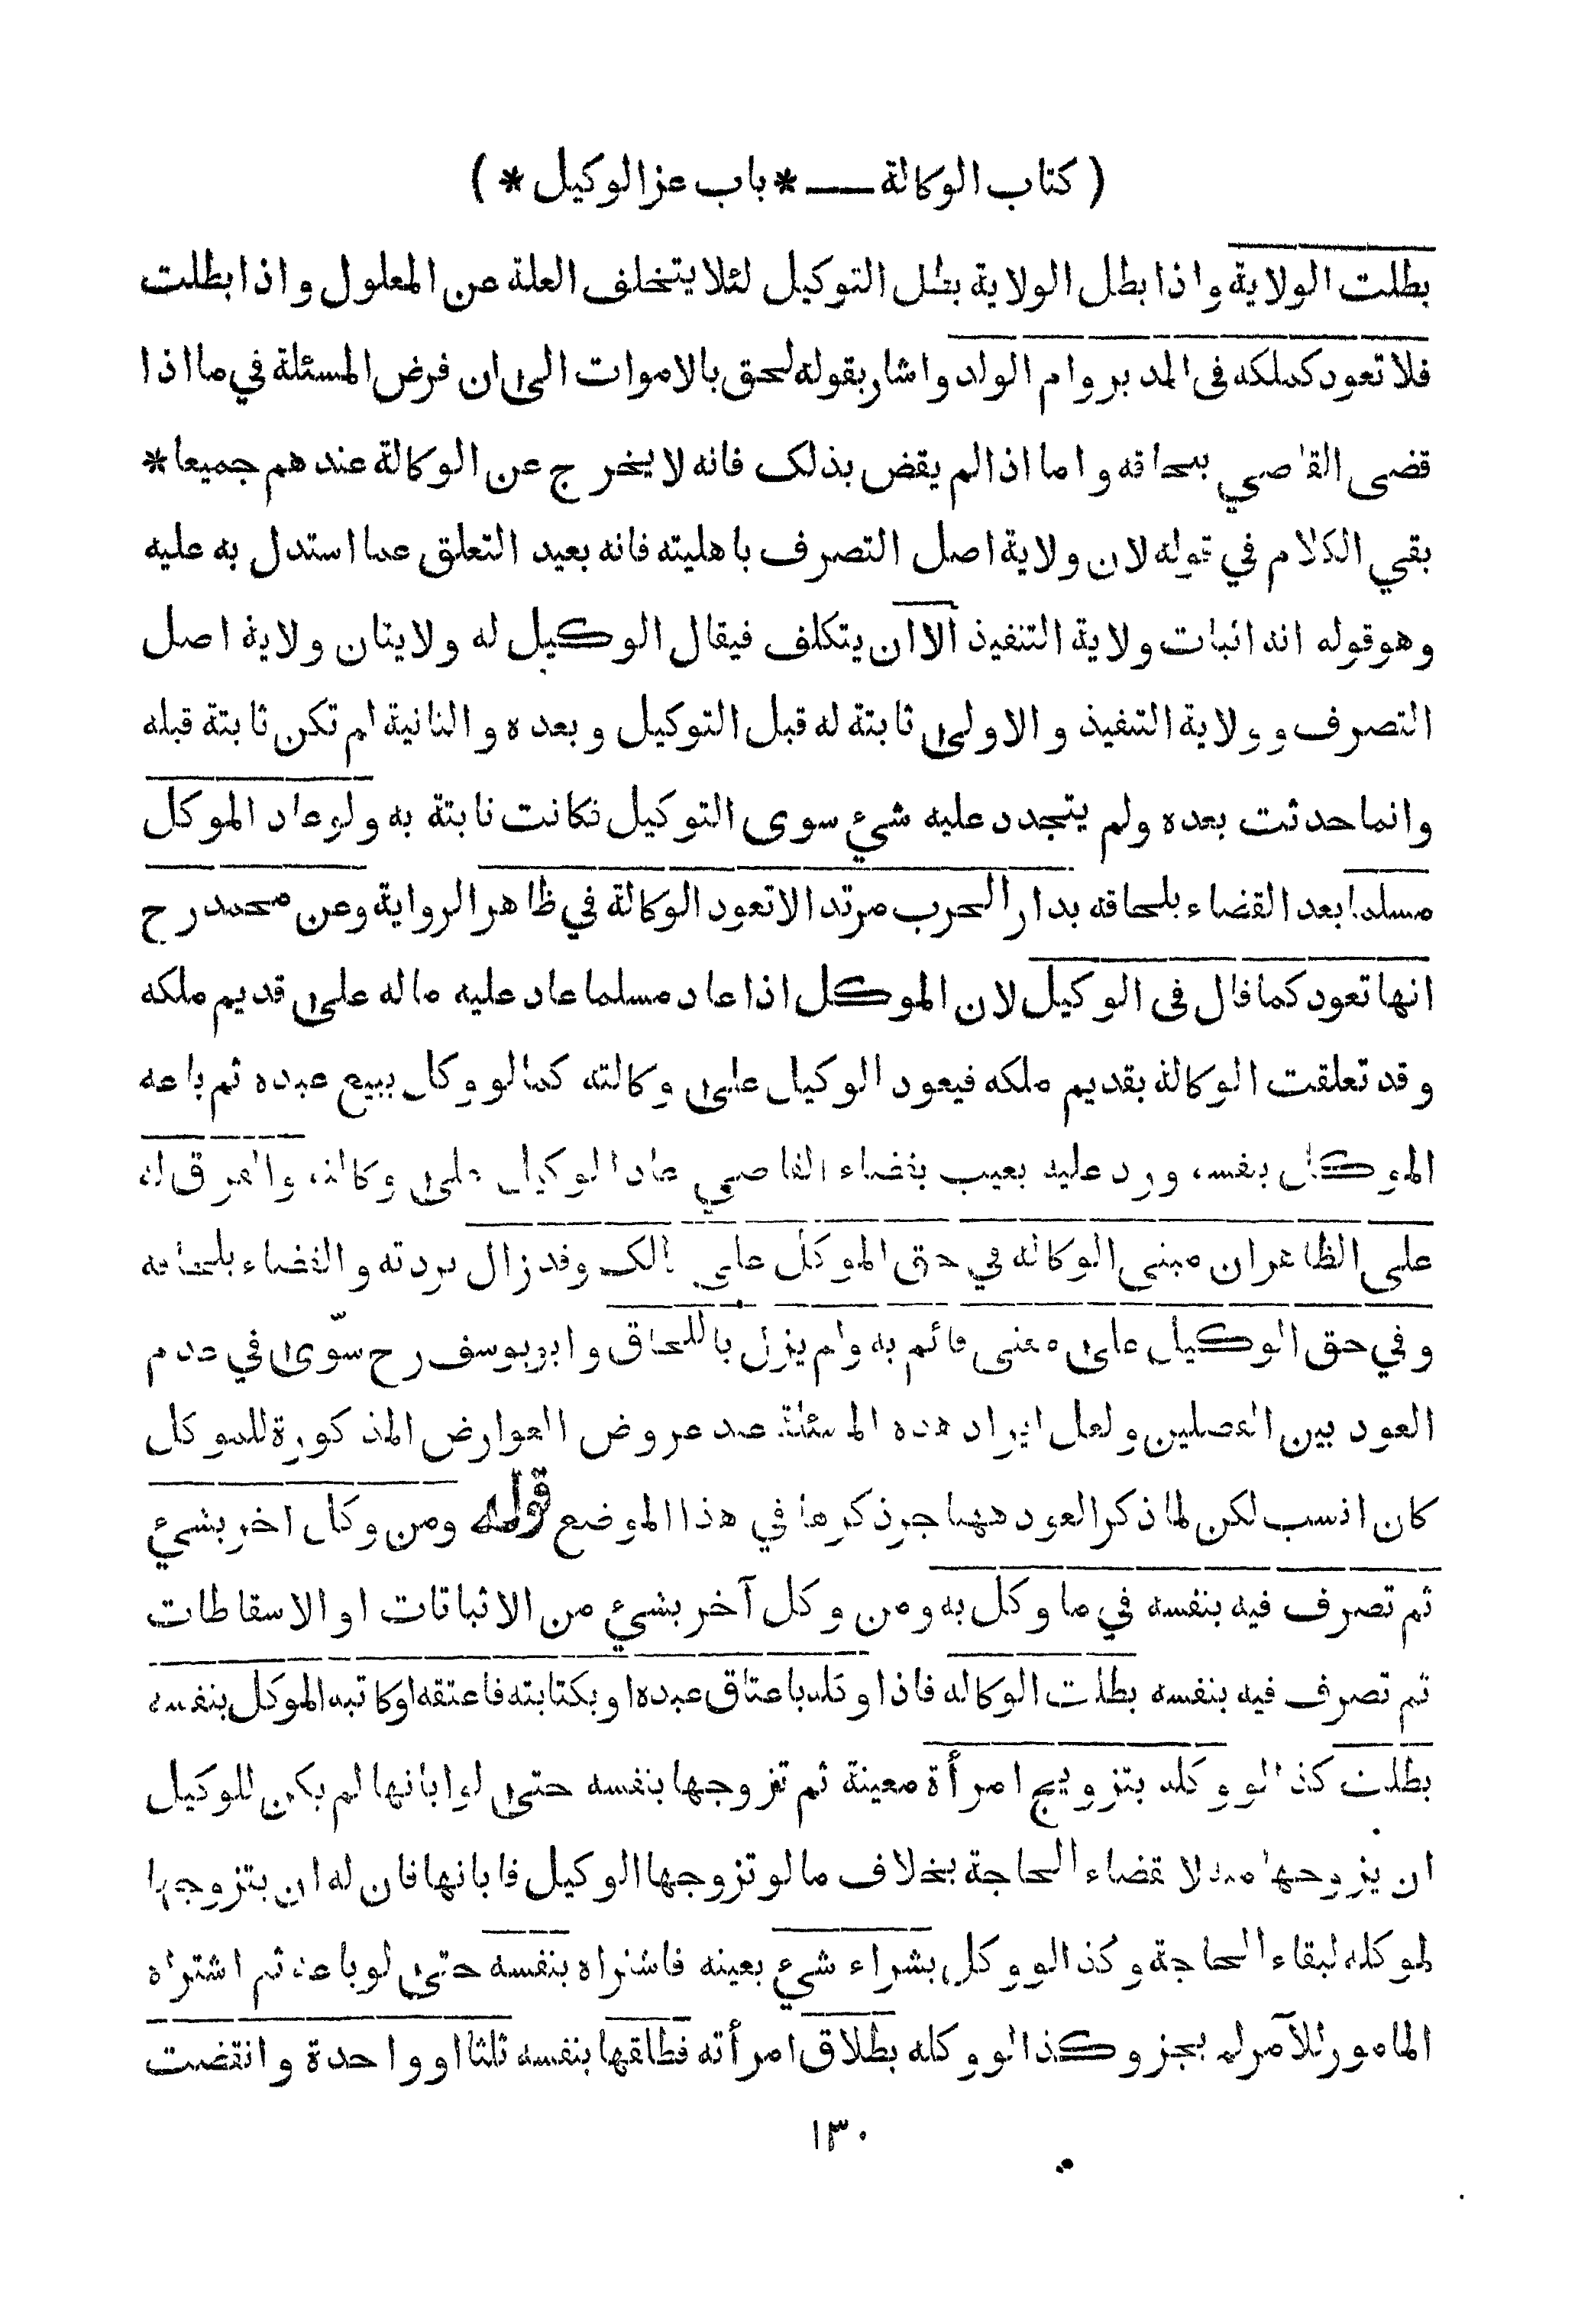 ( كتاب الوكالة ــــ * باب عزالوكيل * )
بطلت الولاية واذا بطل الولاية بطل التوكيل لئلا يتخلف العلة عن المعلول واذا بطلت
فلا تعود كملكه فى المدبر وام الولد واشار بقوله لحق بالاموات الى ان فرض المسئلة في ما اذا
قضى القاضي بلحاقه واما اذا لم يقض بذلك فانه لا يخرج عن الوكالة عندهم جميعا *
بقي الكلام في قوله لان ولاية اصل التصرف باهليته فانه بعيد التعلق عما استدل به عليه
وهو قوله انه اثبات ولاية التنفيذ الا ان يتكلف فيقال الوكيل له ولايتان ولاية اصل
التصرف وولاية التنفيذ والاولى ثابتة له قبل التوكيل وبعده والثانية لم تكن ثابتة قبله
وانما حدثت بعده ولم يتجدد عليه شيء سوى التوكيل فكانت ثابتة به ولو عاد الموكل
مسلما بعد القضاء بلحاقه بدار الحرب مرتدا لا تعود الوكالة في ظاهر الرواية وعن محمد رح
انها تعود كما قال فى الوكيل لان الموكل اذا عاد مسلما عاد عليه ماله على قديم ملكه
وقد تعلقت الوكالة بقديم ملكه فيعود الوكيل على وكالته كما لو وكل ببيع عبده ثم باعه
الموكل بنفسه ورد عليه بعيب بقضاء القاضي عاد الوكيل على وكالته والفرق له
على الظاهر ان مبنى الوكالة في حق الموكل على الملك وقد زال بردته والقضاء بلحاقه
وفي حق الوكيل على معنى قائم به ولم يزل باللحاق وابو يوسف رح سوّى في عدم
العود بين الفصلين ولعل ايراد هذه المسئلة عند عروض العوارض المذكورة للموكل
كان انسب لكن لما ذكر العود ههنا جر ذكرها في هذا الموضع قوله ومن وكل اخر بشيء
ثم تصرف فيه بنفسه في ما وكل به ومن وكل آخر بشيء من الاثباتات او الاسقاطات
ثم تصرف فيه بنفسه بطلت الوكالة فاذا وكله باعتاق عبده او بكتابته فاعتقه اوكاتبه الموكل بنفسه
بطلت كذا لو وكله بتزويج امرأة معينة ثم تزوجها بنفسه حتى لو ابانها لم يكن للوكيل
ان يزوجها منه لا نقضاء الحاجة بخلاف ما لو تزوجها الوكيل فابانها فان له ان يتزوجها
لموكله لبقاء الحاجة وكذا لو وكل بشراء شيء بعينه فاشتراه بنفسه حتى لو باعه ثم اشتراه
المامور للآمر لم يجز وكذا لو وكله بطلاق امرأته فطلقها بنفسه ثلثا او واحدة وانقضت
١٣٠